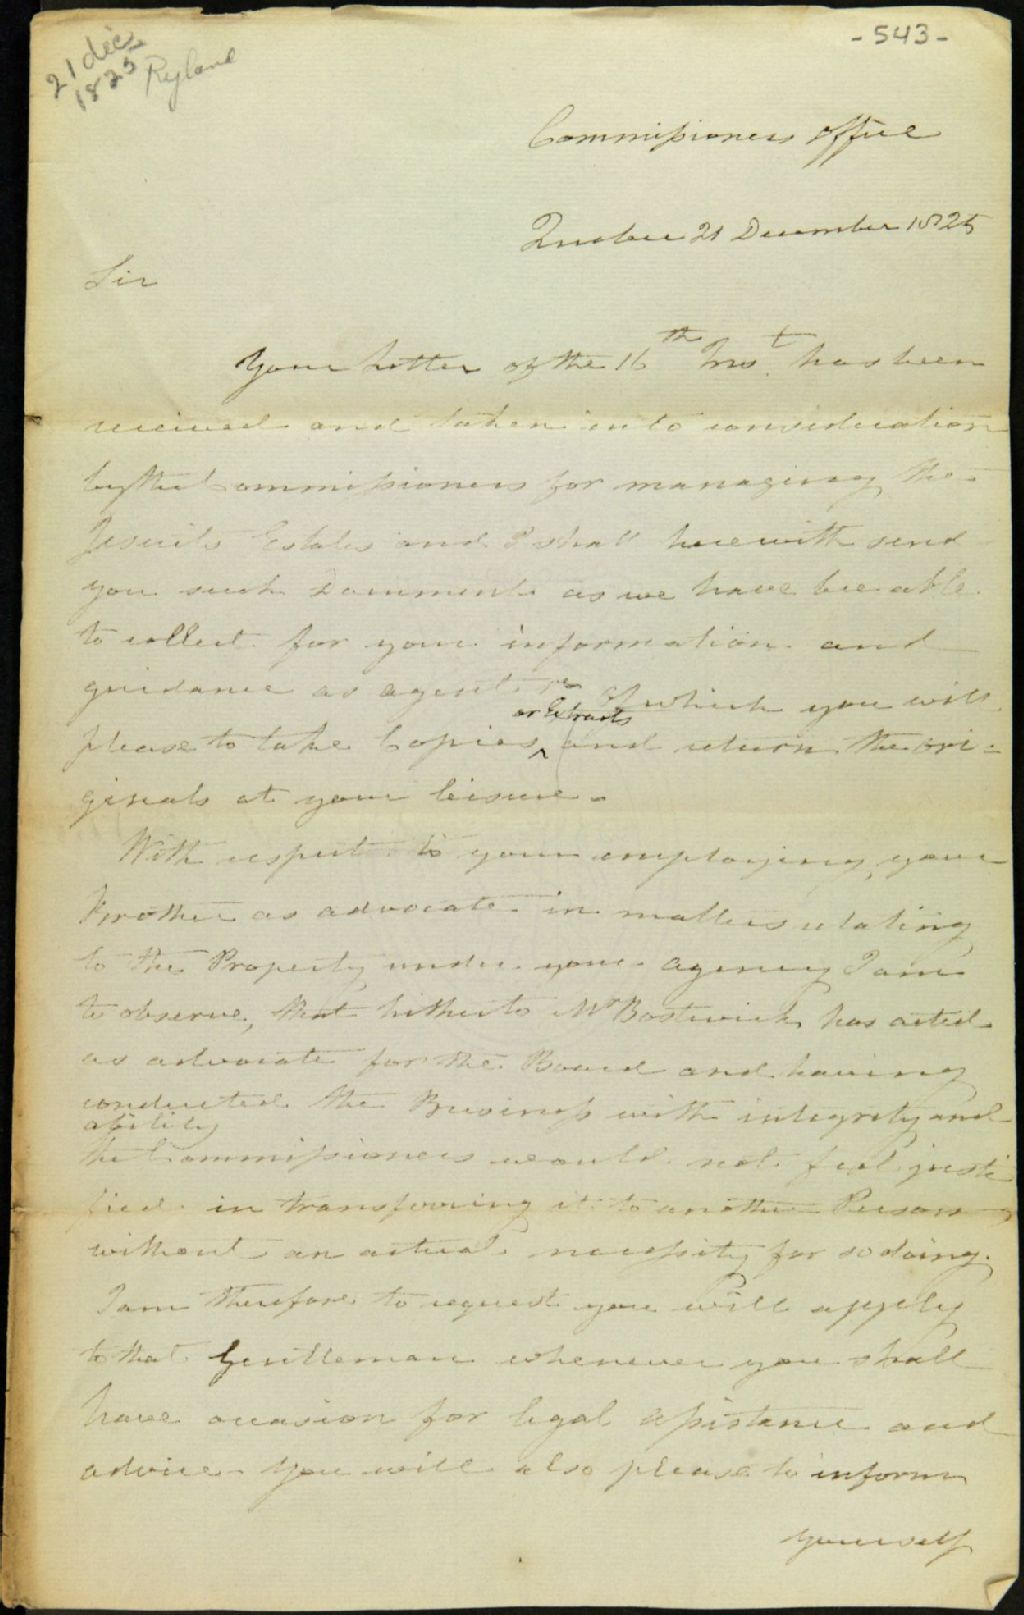 - 543 -
21 déc
1825
Ryland
Commissioners office
Quebec 21 December 1825
Sir
Your Letter of the 16th Inst. has been
received and taken into consideration
by the Commissioners for managing the
Jesuits Estates and I shall herewith send
you such documents as we have bee able
to collect for your information and
guidance as agent of which you will
or Extracts
please to take Copies ^ and return the ori-
ginals at your leisure.
With respect to your employing your
Brother as advocate in matters relating
to the Property under your agency I am
to observe, that hitherto Mr Bostwick has acted
as advocate for the Board and having
conducted the Business with integrity and
ability
the Commissioners would not feel justi
fied in transferring it to another Person
without an actual necessity for so doing.
I am therefore to request you will apply
to that Gentleman whenever you shall
have occasion for legal assistance and
advice. You will also please to inform
yourself